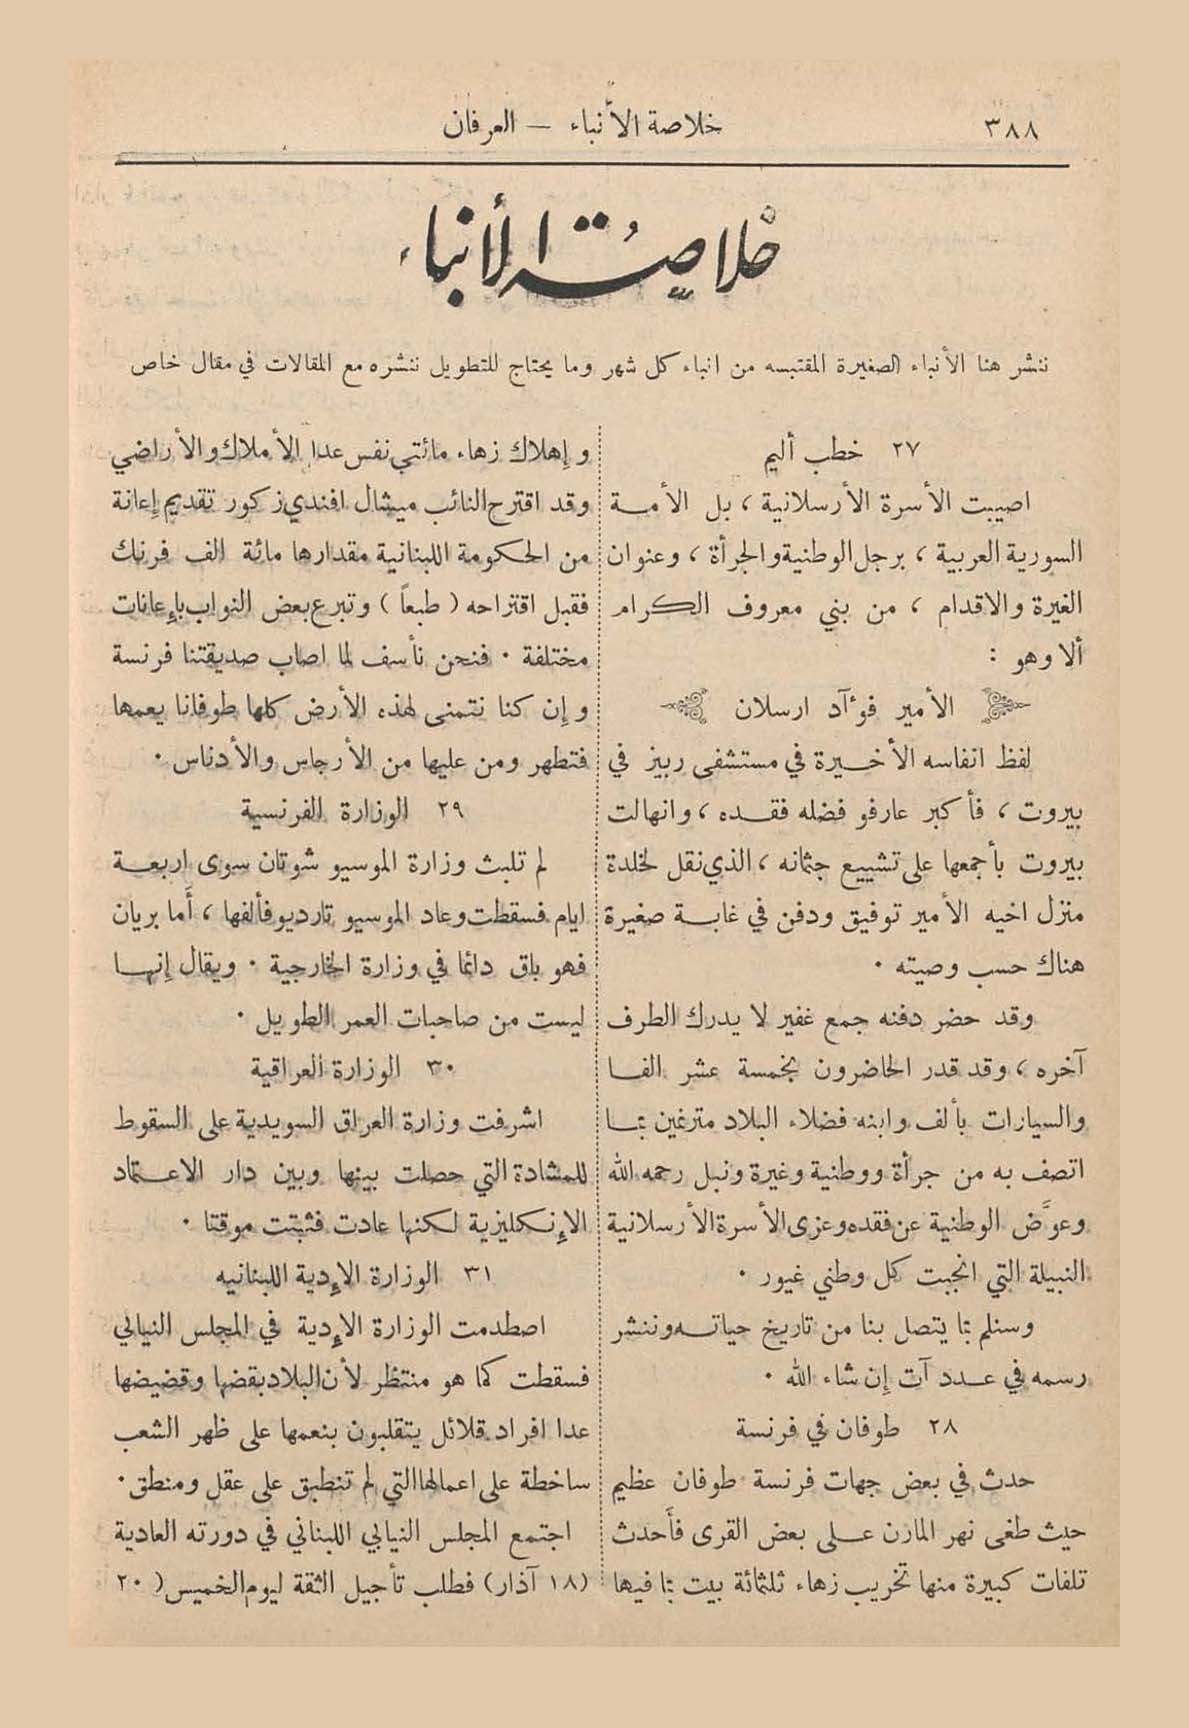 ٣٨٨
خلاصة الأنباء – العرفان
خلاصة الأنباء
ننشر هنا الأنباء الصغيرة المقتبسه من انباء كل شهر وما يحتاج للتطويل ننشره مع المقالات في مقال خاص
٢٧ خطب أليم
اصيبت الأسرة الأرسلانية ، بل الأمة
السورية العربية ، برجل الوطنية والجرأة ، وعنوان
الغيرة والاقدام ، من بني معروف الكرام
ألا وهو :
الأمير فوٴآد ارسلان
لفظ انفاسه الأخيرة في مستشفى ربيز في
بيروت ، فأكبر عارفو فضله فقده ، وانهالت
بيروت بأجمعها على تشييع جثمانه ، الذي نقل لخلدة
منزل اخيه الأمير توفيق ودفن في غابة صغيرة
هناك حسب وصيته .
وقد حضر دفنه جمع غفير لا يدرك الطرف
آخره ، وقد قدر الحاضرون بخمسة عشر الفا
والسيارات بألف وابنه فضلاء البلاد مترغين بما
اتصف به من جرأة ووطنية وغيرة ونبل رحمه الله
وعوَّض الوطنية عن فقده وعزى الأسرة الأرسلانية
النبيلة التي انجبت كل وطني غيور .
وسنلم بما يتصل بنا من تاريخ حياته وننشر
رسمه في عدد آت إن شاء الله .
٢٨ طوفان في فرنسة
حدث في بعض جهات فرنسة طوفان عظيم
حيث طغى نهر المارن على بعض القرى فأحدث
تلفات كبيرة منها تخريب زهاء ثلثمائة بيت بما فيها
وإهلاك زهاء مائتي نفس عدا الأملاك والأراضي
وقد اقترح النائب ميشال افندي زكور تقديم إعانة
من الحكومة اللبنانية مقدارها مائة الف فرنك
فقبل اقتراحه ( طبعاً ) وتبرع بعض النواب بإعانات
مختلفة . فنحن نأسف لما اصاب صديقتنا فرنسة
وإن كنا نتمنى لهذه الأرض كلها طوفانا يعمها
فتطهر ومن عليها من الأرجاس والأدناس .
٢٩ الوزارة الفرنسية
لم تلبث وزارة الموسيو شوتان سوى اربعة
ايام فسقطت وعاد الموسيو تارديو فألفها ، أما بريان
فهو باق دائما في وزارة الخارجية . ويقال إنها
ليست من صاحبات العمر الطويل .
٣٠ الوزارة العراقية
اشرفت وزارة العراق السويدية على السقوط
للمشادة التي حصلت بينها وبين دار الاعتماد
الإنكليزية لكنها عادت فثبتت موقتا .
٣١ الوزارة الإدية اللبنانيه
اصطدمت الوزارة الإدية في المجلس النيابي
فسقطت كما هو منتظر لأن البلاد بقضها وقضيضها
عدا افراد قلائل يتقلبون بنعمها على ظهر الشعب
ساخطة على اعمالها التي لم تنطبق على عقل ومنطق .
اجتمع المجلس النيابي اللبناني في دورته العادية
(١٨ آذار) فطلب تأجيل الثقة ليوم الخميس( ٢٠